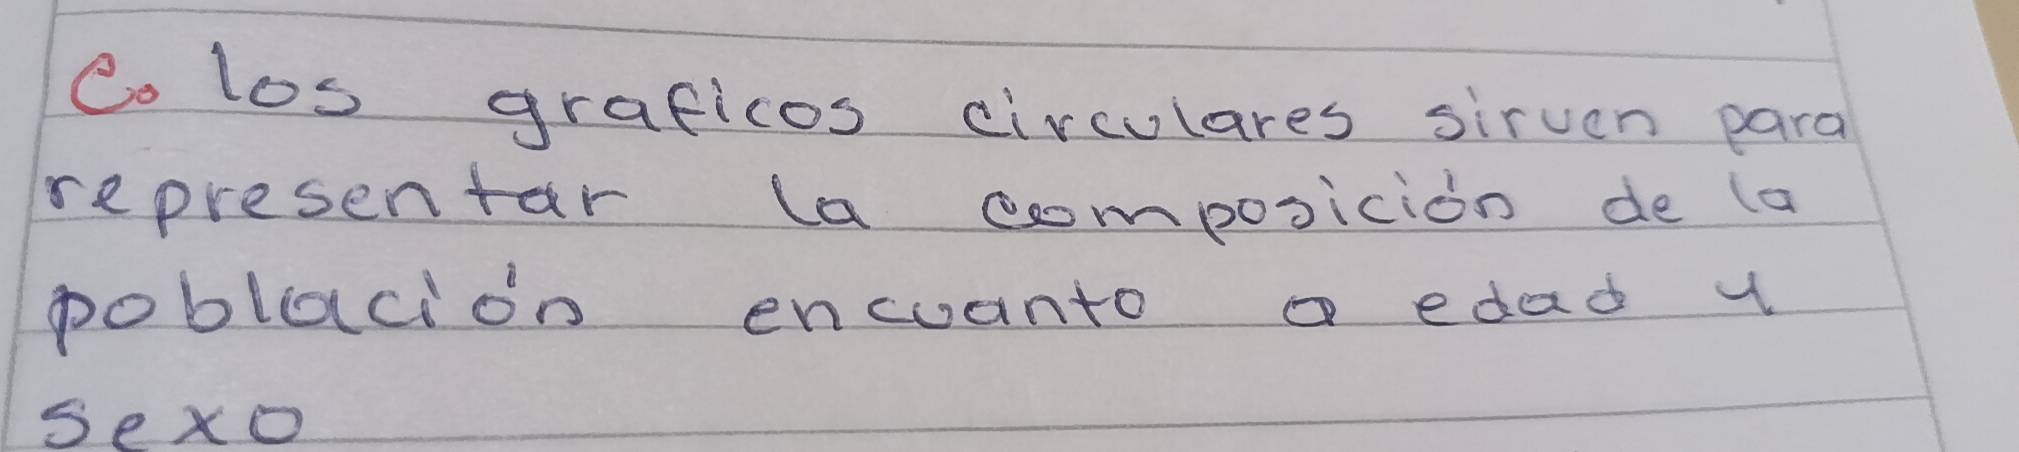 C. los graficos circulares sirven para
representar la composición de la
población encuanto a edad y
sexo